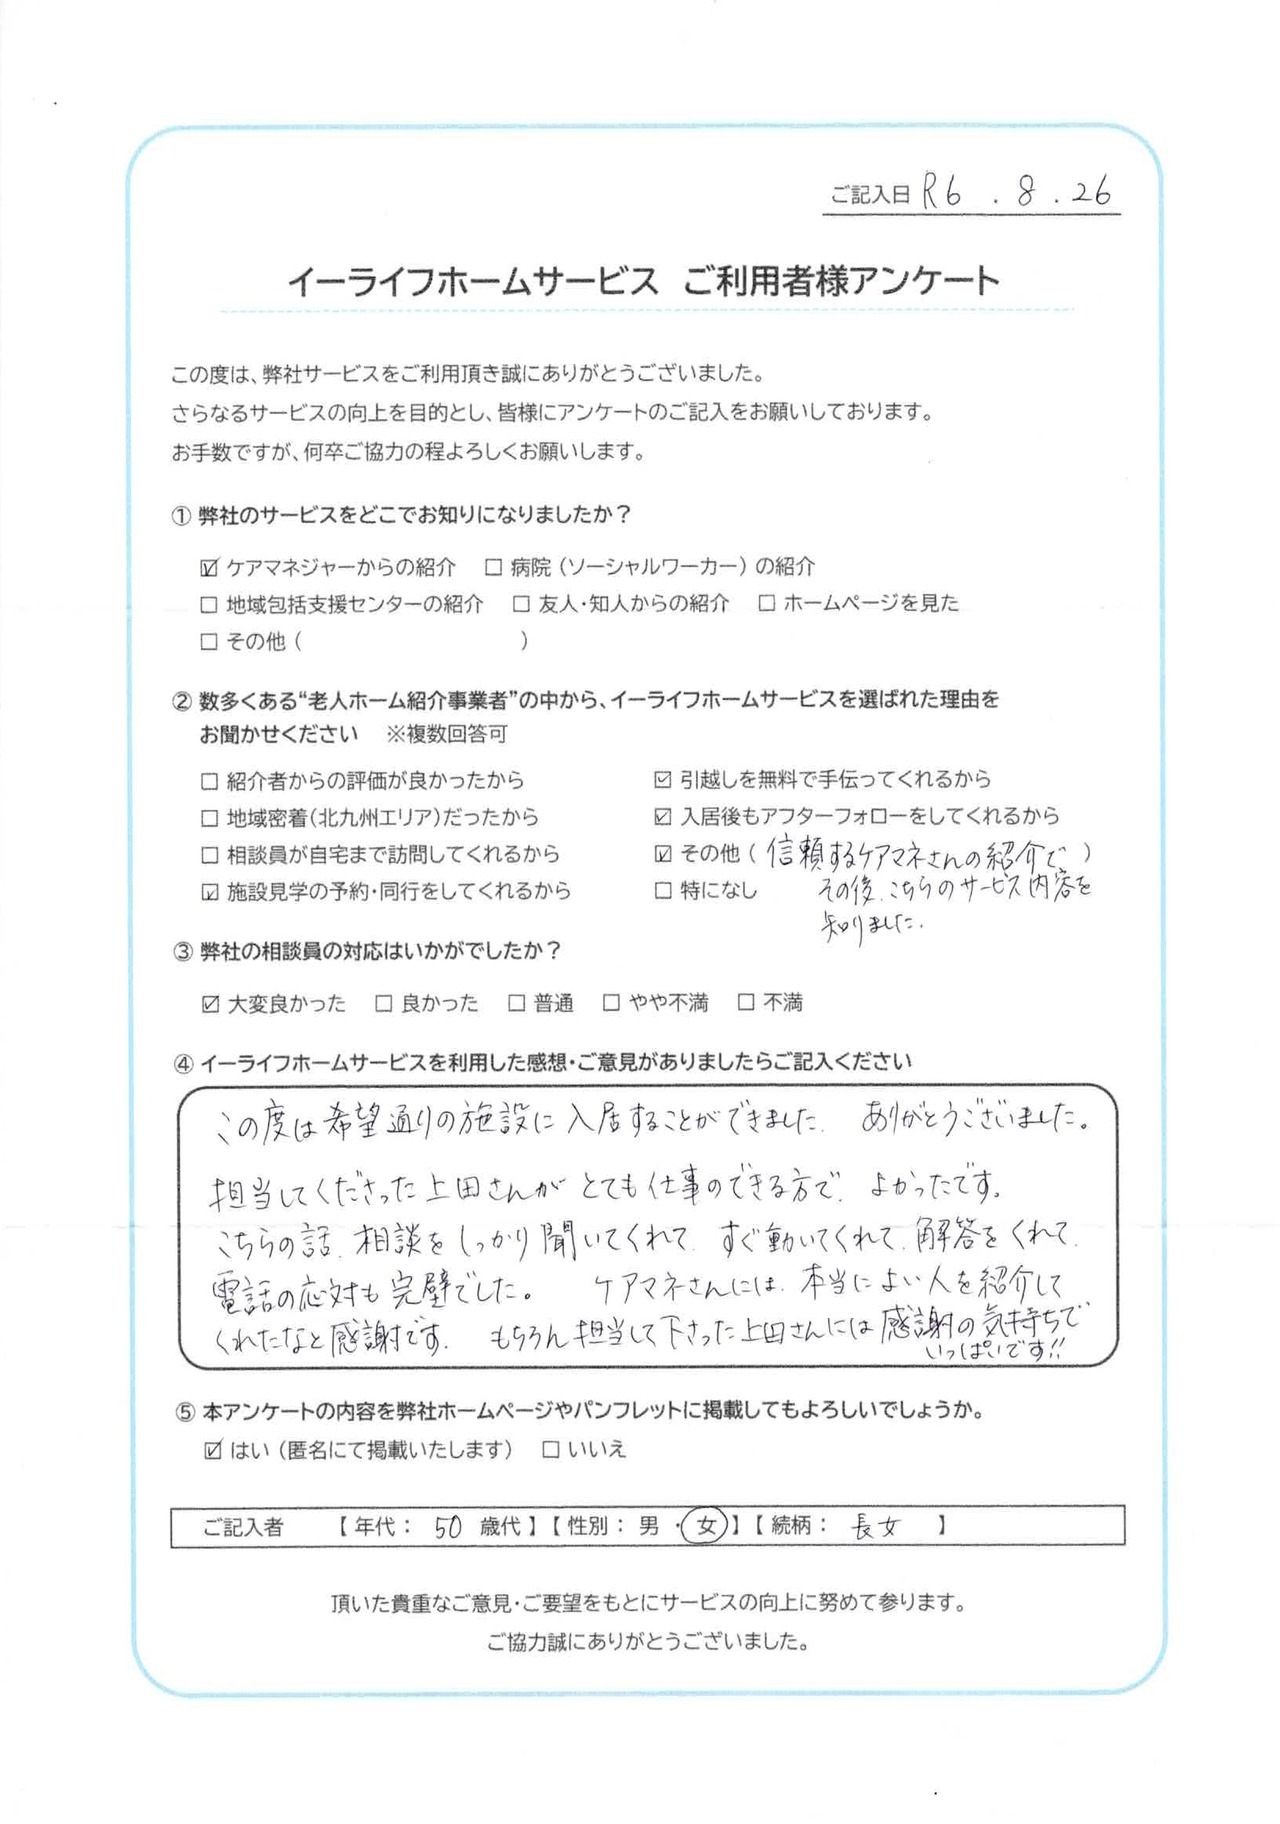 ご記入日 R6 . 8 . 26
イーライフホームサービス ご利用者様アンケート
この度は、弊社サービスをご利用頂き誠にありがとうございました。
さらなるサービスの向上を目的とし、皆様にアンケートのご記入をお願いしております。
お手数ですが、何卒ご協力の程よろしくお願いします。
① 弊社のサービスをどこでお知りになりましたか？
☑ ケアマネジャーからの紹介 □ 病院（ソーシャルワーカー）の紹介
□ 地域包括支援センターの紹介 □ 友人・知人からの紹介 □ ホームページを見た
□ その他（ ）
② 数多くある“老人ホーム紹介事業者”の中から、イーライフホームサービスを選ばれた理由を
お聞かせください ※複数回答可
□ 紹介者からの評価が良かったから
□ 地域密着（北九州エリア）だったから
□ 相談員が自宅まで訪問してくれるから
☑ 施設見学の予約・同行をしてくれるから
☑ 引越しを無料で手伝ってくれるから
☑ 入居後もアフターフォローをしてくれるから
☑ その他（信頼するケアマネさんの紹介で）
□ 特になし その後、こちらのサービス内容を
知りました.
③ 弊社の相談員の対応はいかがでしたか？
☑ 大変良かった □ 良かった □ 普通 □ やや不満 □ 不満
④ イーライフホームサービスを利用した感想・ご意見がありましたらご記入ください
この度は希望通りの施設に入居することができました. ありがとうございました。
担当してくださった上田さんが とても仕事のできる方で、よかったです。
こちらの話、相談をしっかり聞いてくれて、すぐ動いてくれて、解答をくれて、
電話の応対も完璧でした。 ケアマネさんには、本当によい人を紹介して
くれたなと感謝です. もちろん担当して下さった上田さんには感謝の気持ちで
いっぱいです!!
⑤ 本アンケートの内容を弊社ホームページやパンフレットに掲載してもよろしいでしょうか。
☑ はい（匿名にて掲載いたします） □ いいえ
ご記入者 【 年代： 50 歳代 】【 性別： 男 ・ 女 】【 続柄： 長女 】
頂いた貴重なご意見・ご要望をもとにサービスの向上に努めて参ります。
ご協力誠にありがとうございました。